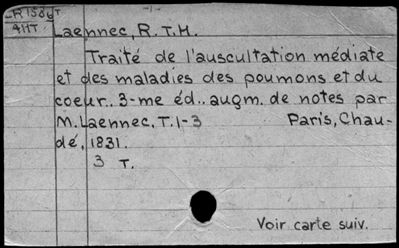 LR1586T
4HT
Laennec, R.T.H.
Traité de l'auscultation médiate
et des maladies des poumons et du
coeur.. 3-me éd.. augm. de notes par
M. Laennec, T. 1-3 Paris, Chau-
dé, 1831.
3 T.
Voir carte suiv.